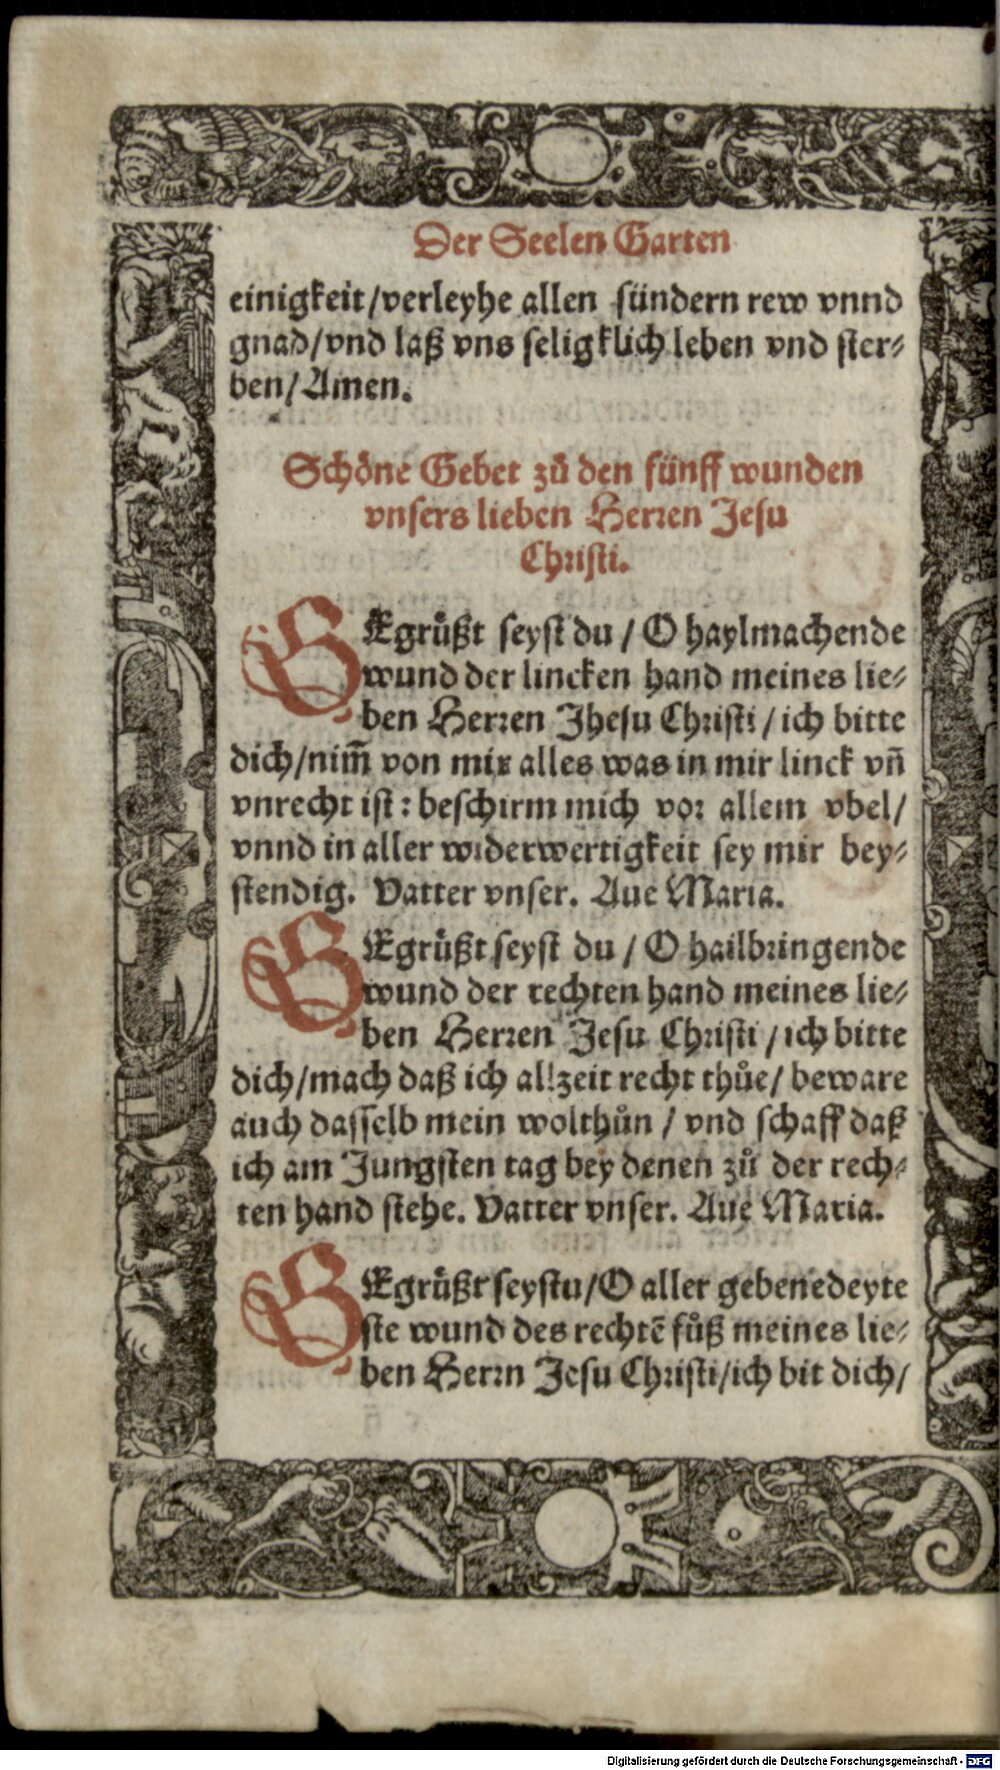 Der Seelen Garten
einigkeit/verleyhe allen sündern rew vnnd
gnad/vnd laß vns seligklich leben vnd ster⸗
ben/Amen.
Schöne Gebet zů den fünff wunden
vnsers lieben Herren Jesu
Christi.
GEgrüßt seyst du / O haylmachende
wund der lincken hand meines lie⸗
ben Herren Jhesu Christi / ich bitte
dich/nim̃ von mir alles was in mir linck vñ
vnrecht ist : beschirm mich vor allem vbel/
vnnd in aller widerwertigkeit sey mir bey⸗
stendig. Vatter vnser. Aue Maria.
GEgrüßt seyst du / O hailbringende
wund der rechten hand meines lie⸗
ben Herren Jesu Christi / ich bitte
dich/mach daß ich allzeit recht thůe/ beware
auch dasselb mein wolthůn / vnd schaff daß
ich am Jungsten tag bey denen zů der rech⸗
ten hand stehe. Vatter vnser. Aue Maria.
GEgrüßt seystu/O aller gebenedeyte
ste wund des rechtē fůß meines lie⸗
ben Herrn Jesu Christi/ich bit dich/
Digitalisierung gefördert durch die Deutsche Forschungsgemeinschaft - DFG